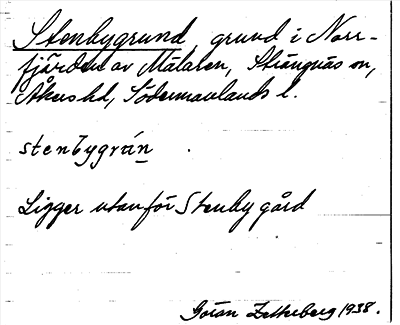 Stenbygrund grund i Norr-
fjärden av Mälaren, Strängnäs sn,
Åkers hd, Södermanlands l.
stenbygrún
Ligger utanför Stenby gård
Göran Zetterberg 1938.